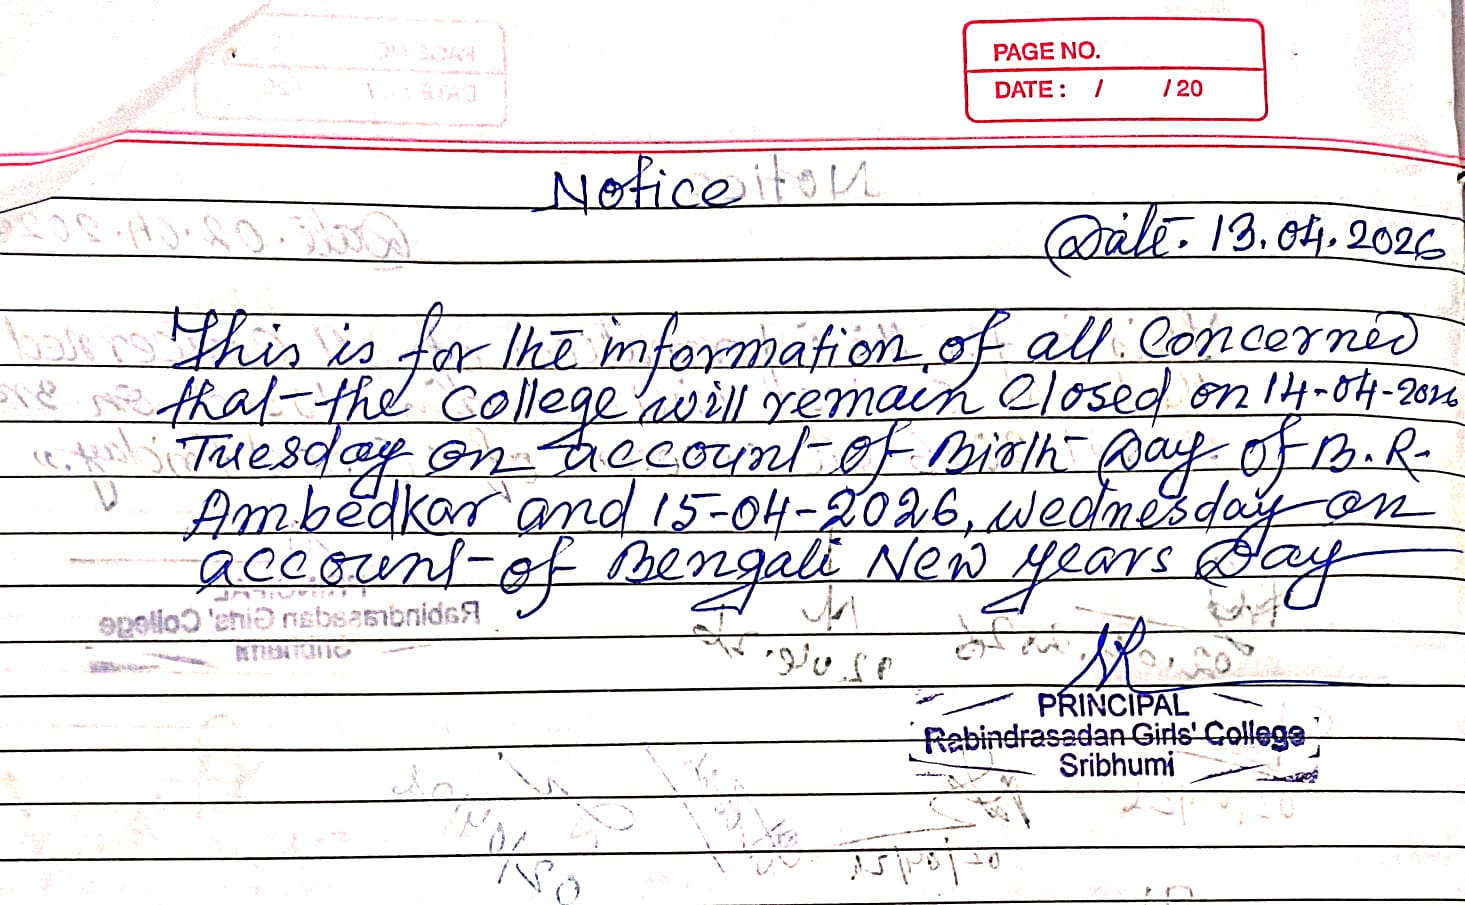 PAGE NO.
DATE : / / 20
Notice
Date. 13.04.2026
This is for the information of all Concerned
that the College will remain Closed on 14-04-2026
Tuesday on account of Birth Day of B.R.
Ambedkar and 15-04-2026, Wednesday on
account of Bengali New Years Day
PRINCIPAL
Rabindrasadan Girls' College
Sribhumi